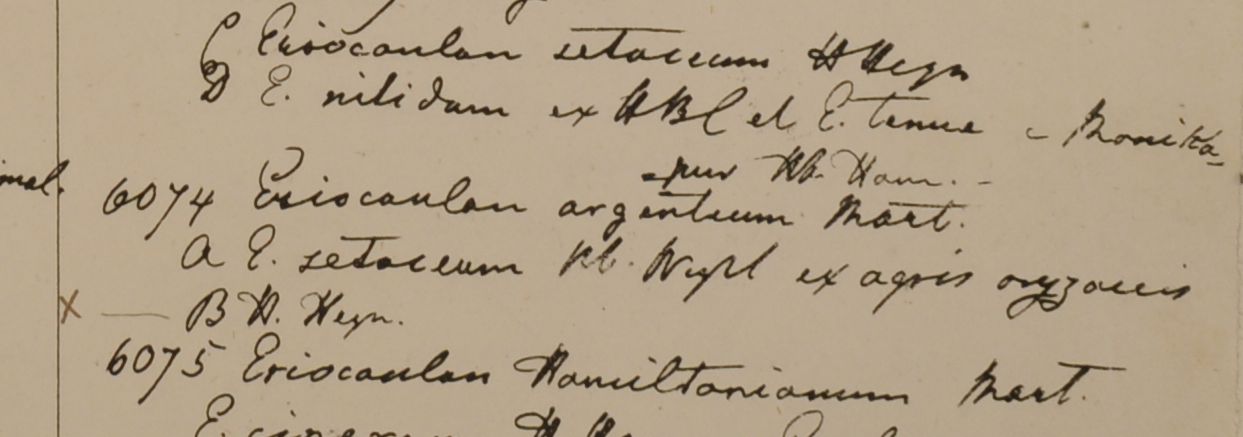 C Eriocaulon setaceum H Heyn
D E. nitidam ex HBC et E. tenue e Monika-
-pur Hb. Ham. -
mal.
6074 Eriocaulon argenteum Mart.
A E. setaceum Hb. Wight ex agris oryzaceis
X — B H. Heyn.
6075 Eriocaulon Hamiltonianum Mart.
E.